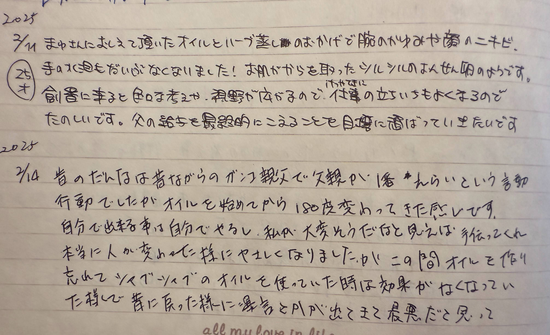 2025
2/11 まゆさんにおしえて頂いたオイルとハーブ蒸しのおかげで腕のかゆみや歯のニキビ、
25才 手の水泡もだいぶなくなりました！お肌がからを取ったシルシルのよんせん卵のようです。
創香に来ると色々な考えや、視野が広がるので、仕事の立ちいちもよくなるので
たのしいです。父の給与を最終的にこえることを目標に頑ばっていきたいです
2025
2/14 昔のだんなは昔ながらのガンコ親父で父親が1番えらいという言動
行動でしたがオイルを始めてから180度変わってきた感じです。
自分で出来る事は自分でやるし、私が大変そうだなと見えば手伝ってくれ
本当に人が変わった様にやさしくなりました。が この間オイルを作り
忘れてシャブシャブのオイルを使っていた時は効果がなくなってい
た様で昔に戻った様に暴言とかが出てきて最悪だと思って
all my love in